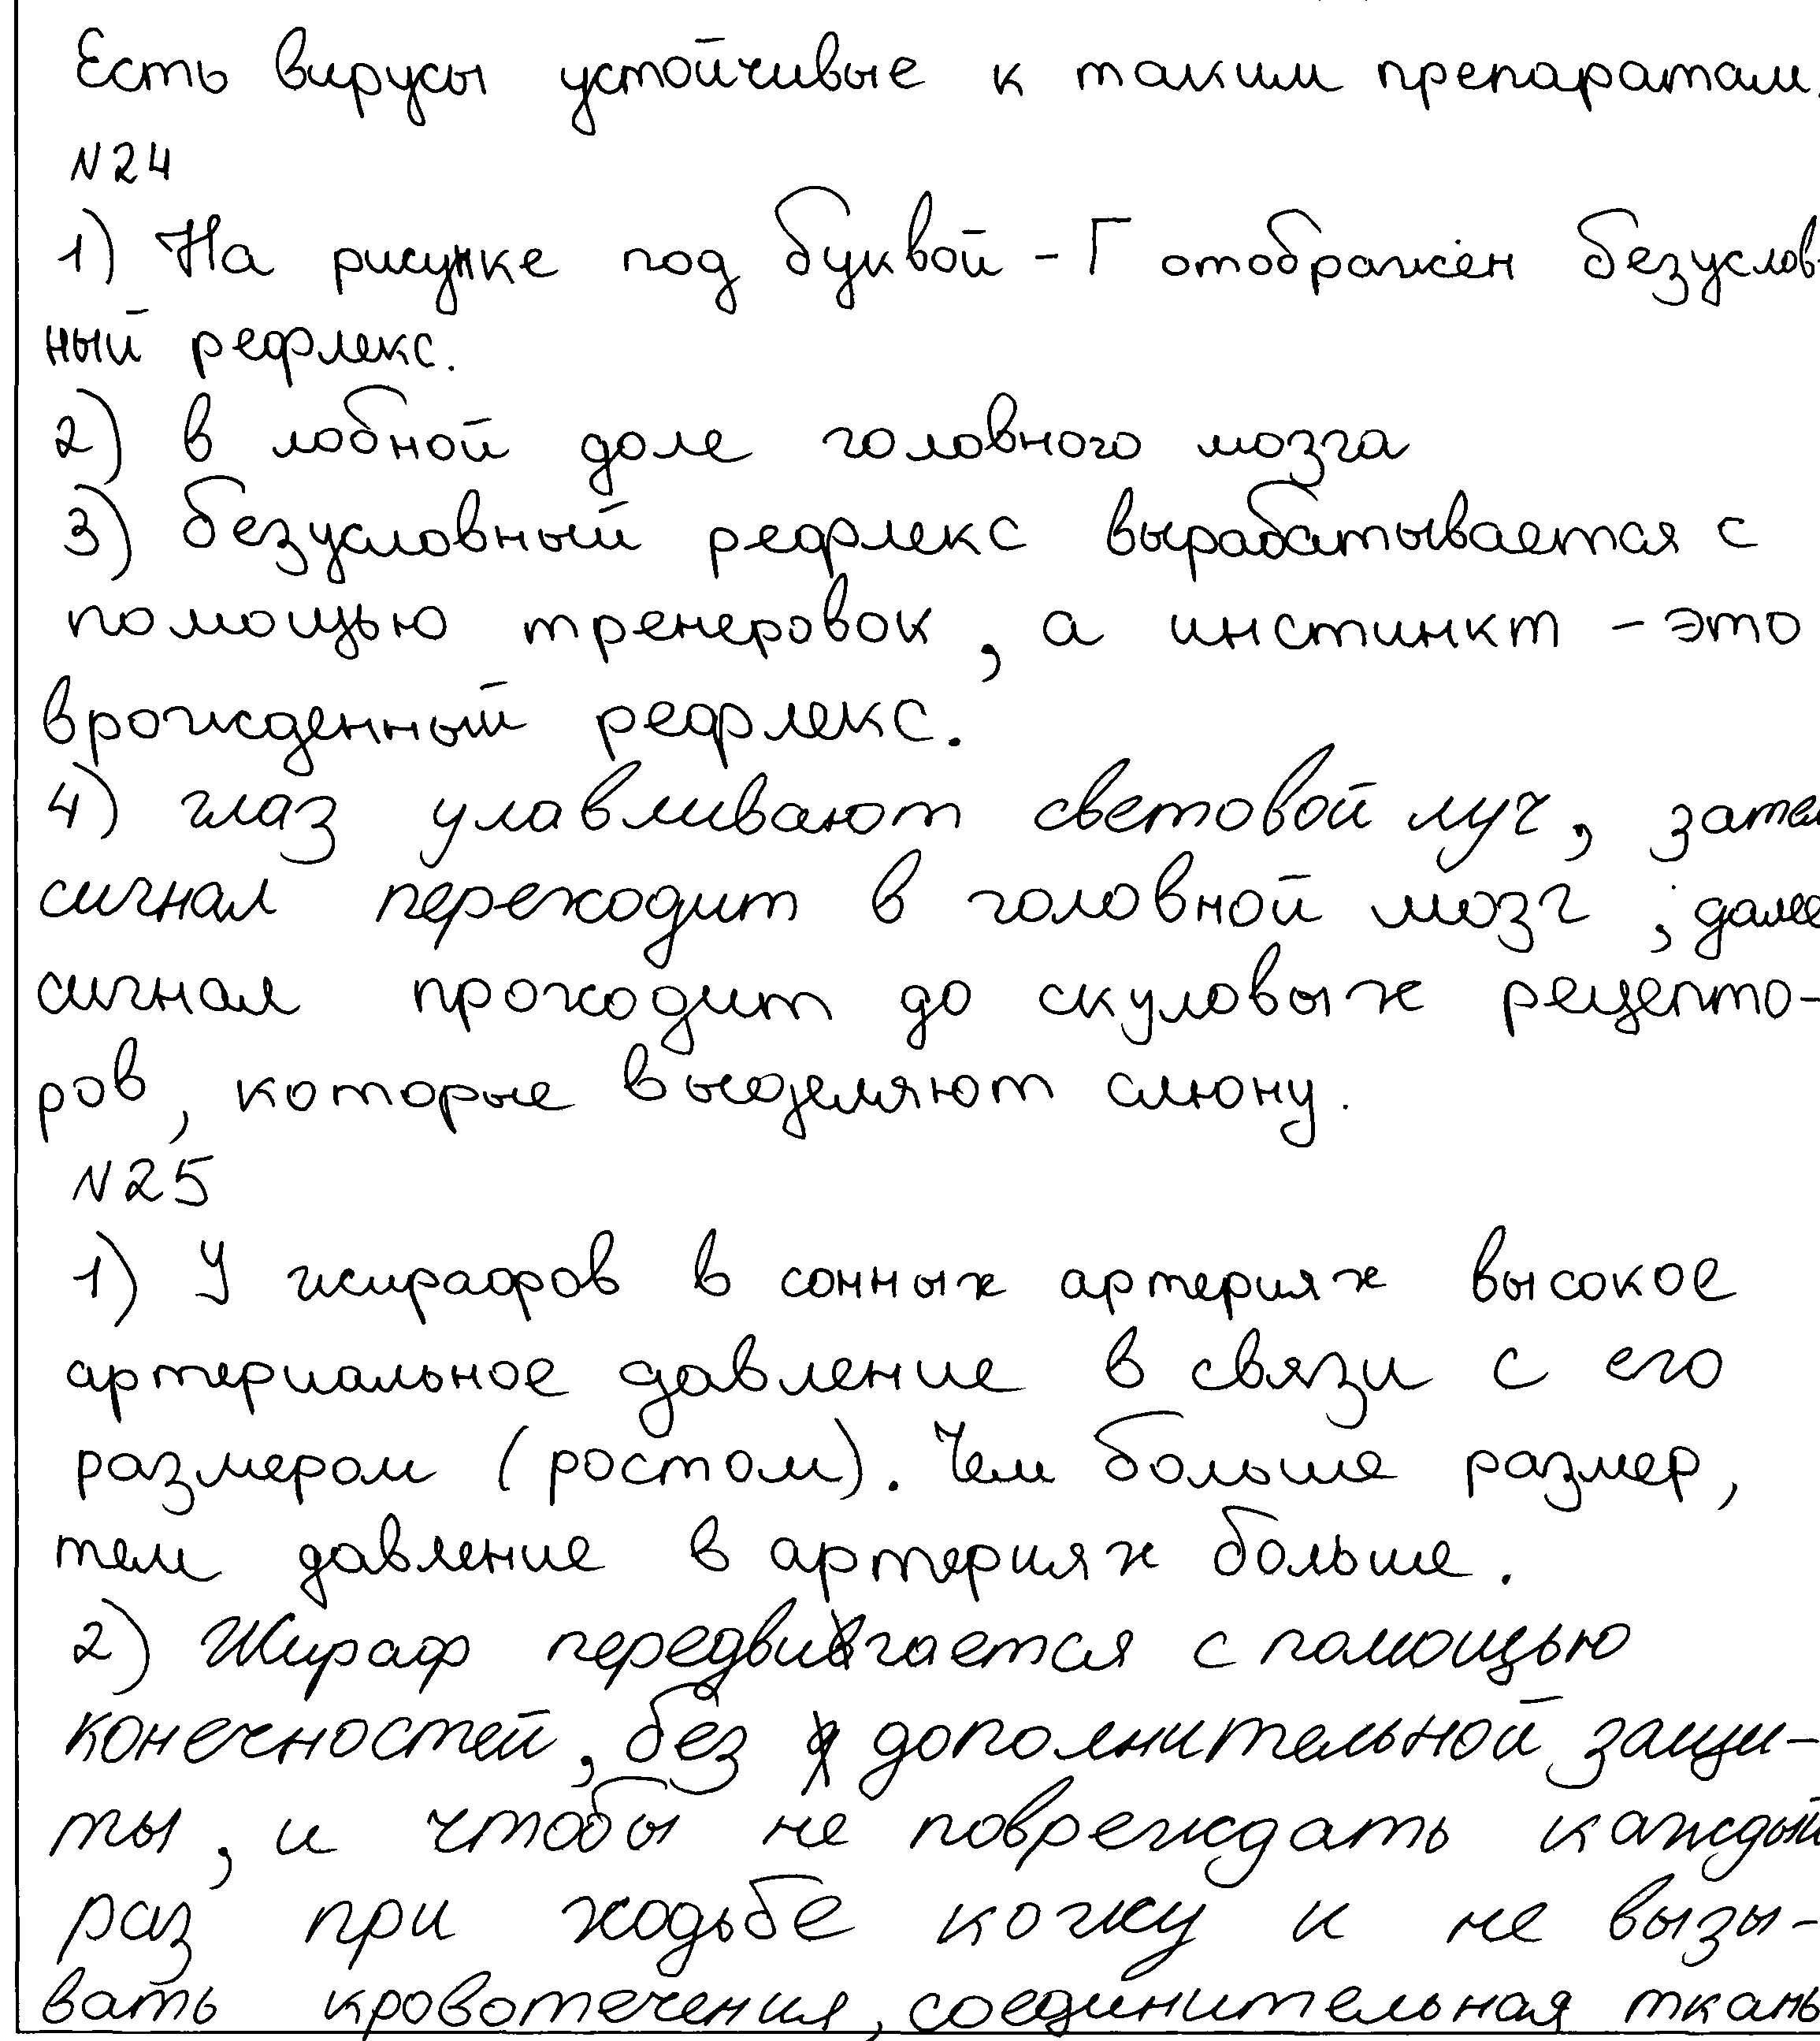 Есть вирусы устойчивые к таким препаратам.
N24
1) На рисунке под буквой - Г отображён безуслов-
ный рефлекс.
2) в лобной доле головного мозга
3) безусловный рефлекс вырабатывается с
помощью тренеровок, а инстинкт - это
врожденный рефлекс.
4) глаз улавливают световой луч, затем
сигнал переходит в головной мозг, далее
сигнал проходит до скуловых рецепто-
ров, которые выделяют слюну.
N25
1) У жирафов в сонных артериях высокое
артериальное давление в связи с его
размером (ростом). Чем больше размер,
тем давление в артериях больше.
2) Жираф передвигается с помощью
конечностей, без дополнительной защи-
ты, и чтобы не повреждать каждый
раз при ходьбе кожу и не вызы-
вать кровотечения, соединительная ткань